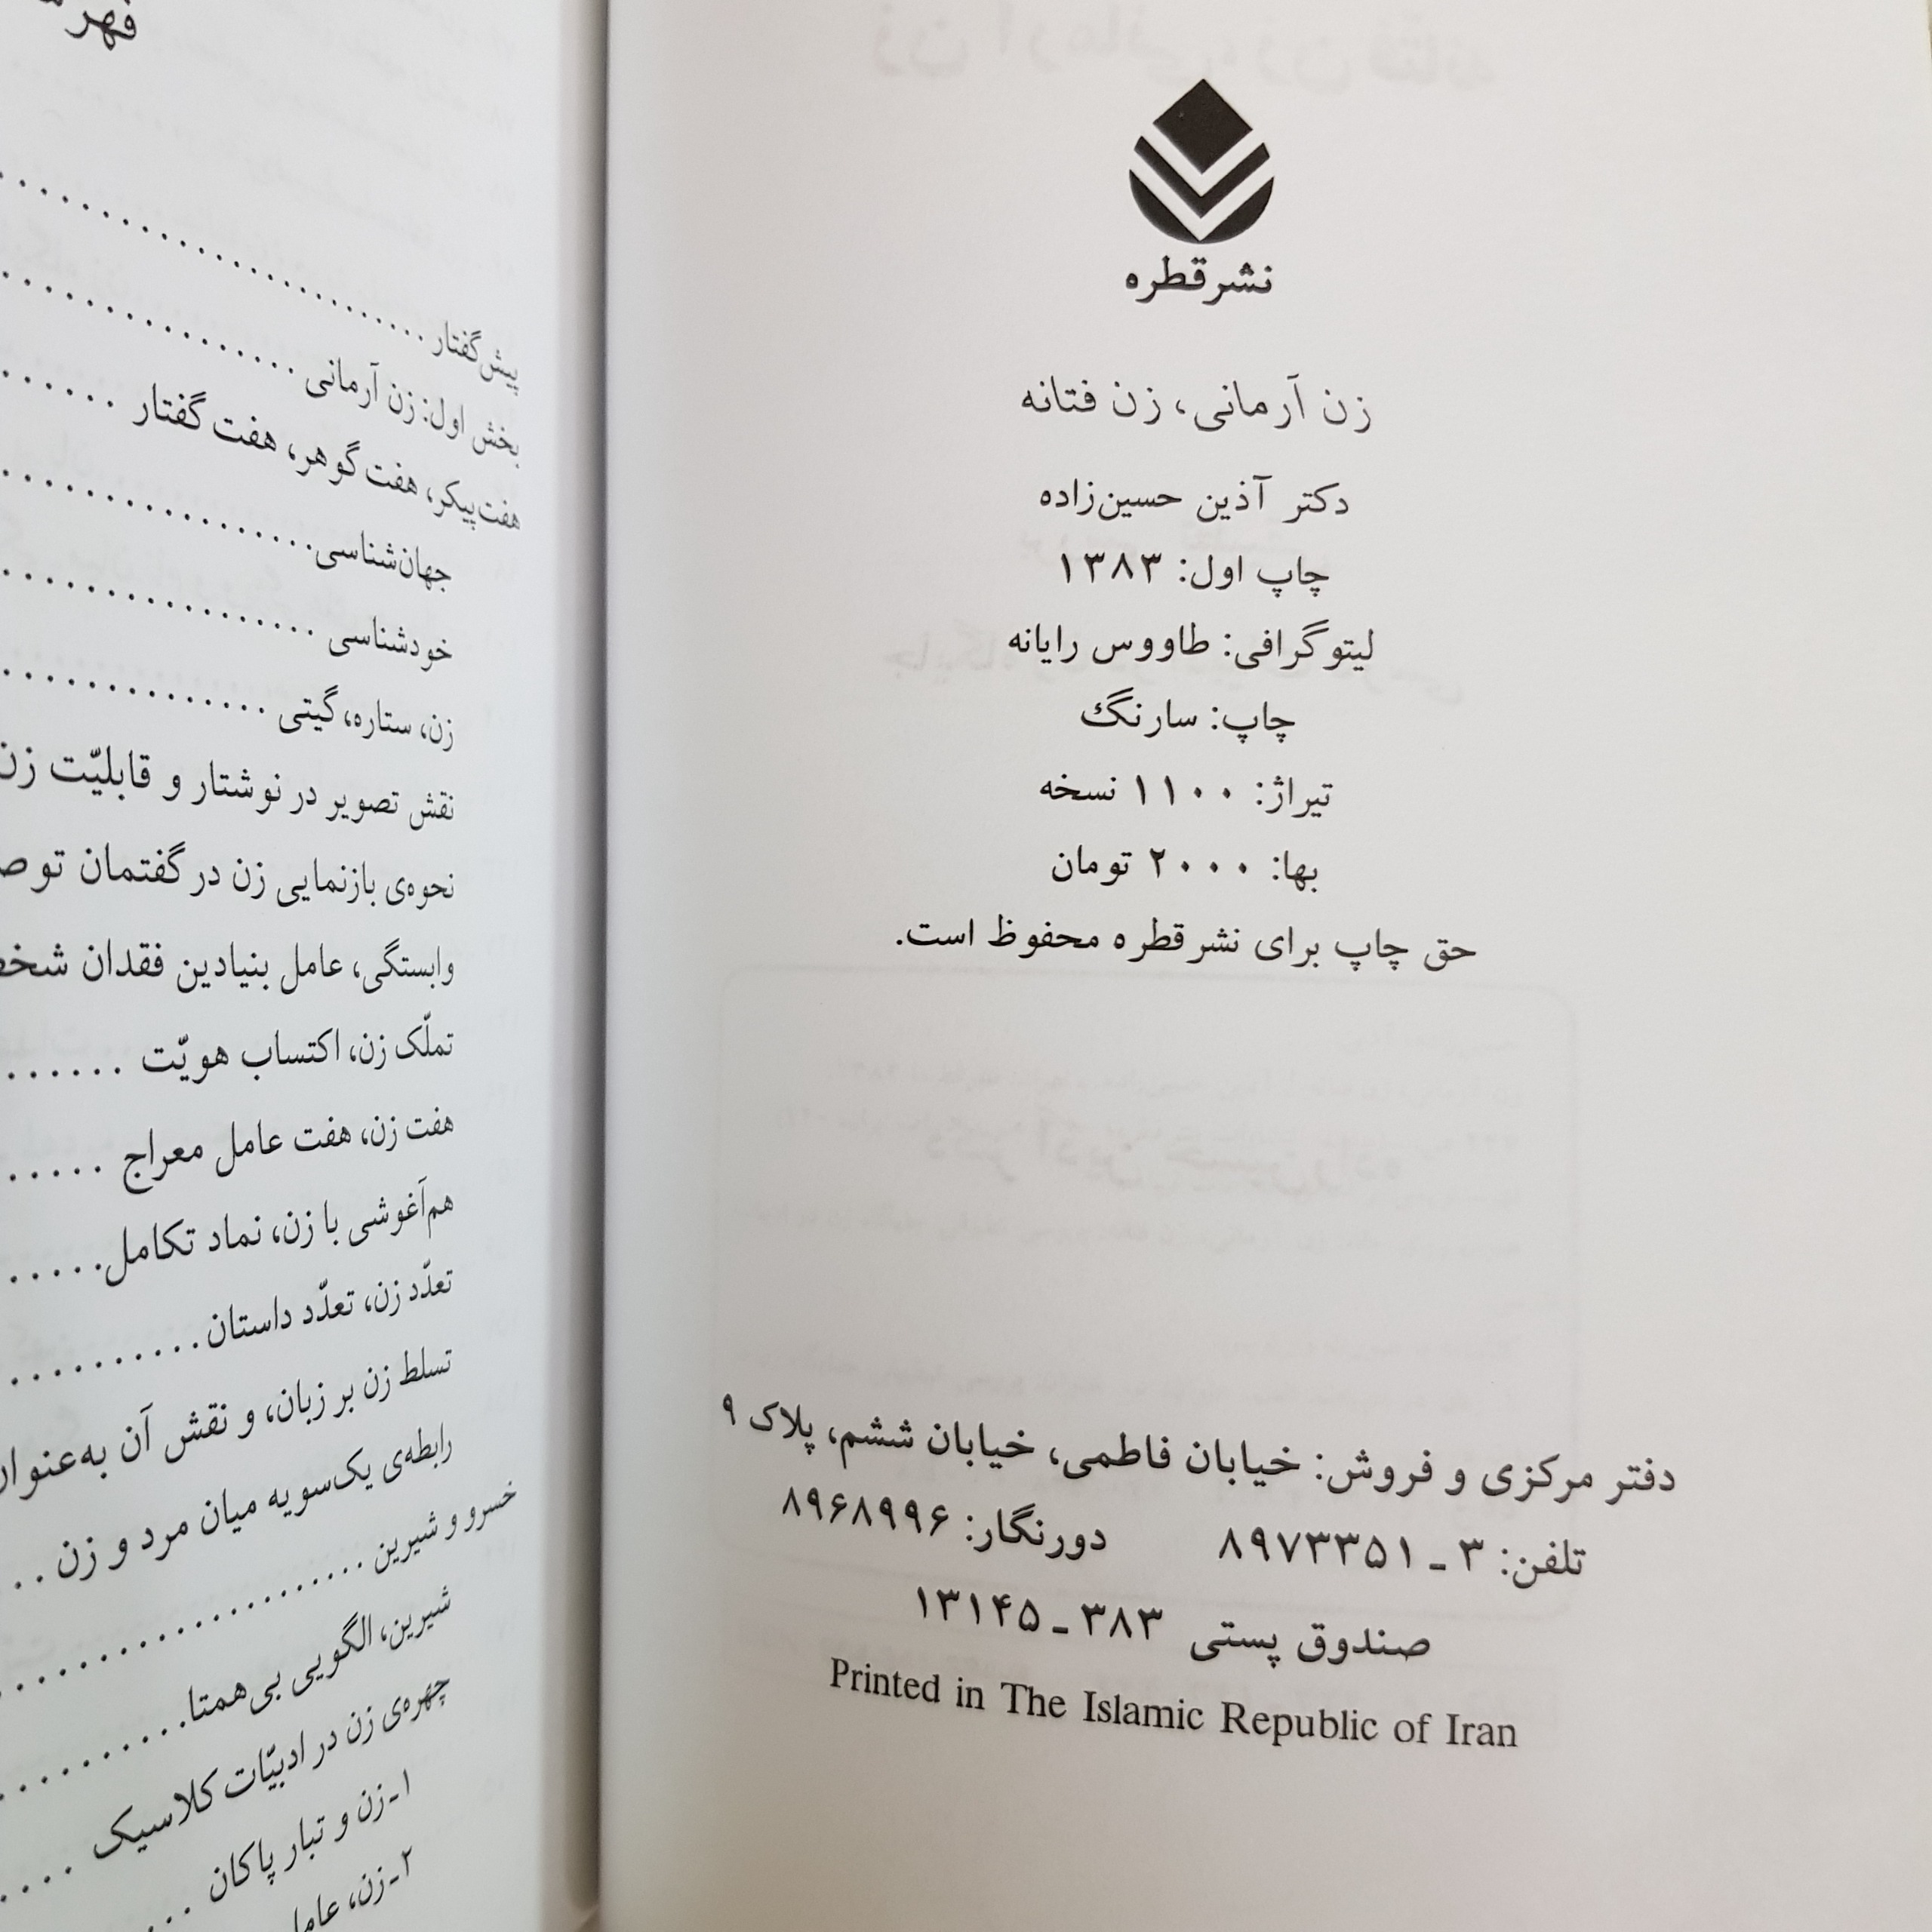 نشر قطره
زن آرمانی، زن فتانه
دکتر آذین حسین‌زاده
چاپ اول: ۱۳۸۳
لیتوگرافی: طاووس رایانه
چاپ: سارنگ
تیراژ: ۱۱۰۰ نسخه
بها: ۲۰۰۰ تومان
حق چاپ برای نشر قطره محفوظ است.
دفتر مرکزی و فروش: خیابان فاطمی، خیابان ششم، پلاک ۹
تلفن: ۳ ـ ۸۹۷۳۳۵۱ دورنگار: ۸۹۶۸۹۹۶
صندوق پستی ۳۸۳ ـ ۱۳۱۴۵
Printed in The Islamic Republic of Iran
پیش‌گفتار
بخش اول: زن آرمانی
هفت‌پیکر، هفت گوهر، هفت گفتار
جهان‌شناسی
خودشناسی
زن، ستاره، گیتی
نقش تصویر در نوشتار و قابلیّت زن
نحوه‌ی بازنمایی زن در گفتمان
وابستگی، عامل بنیادین فقدان
تملّک زن، اکتساب هویّت
هفت زن، هفت عامل معراج
هم‌آغوشی با زن، نماد تکامل
تعدّد زن، تعدّد داستان
تسلط زن بر زبان، و نقش آن
رابطه‌ی یک‌سویه میان مرد و زن
خسرو و شیرین
شیرین، الگویی بی‌همتا
چهره‌ی زن در ادبیّات کلاسیک
۱ـ زن و تبار پاکان
۲ـ زن،